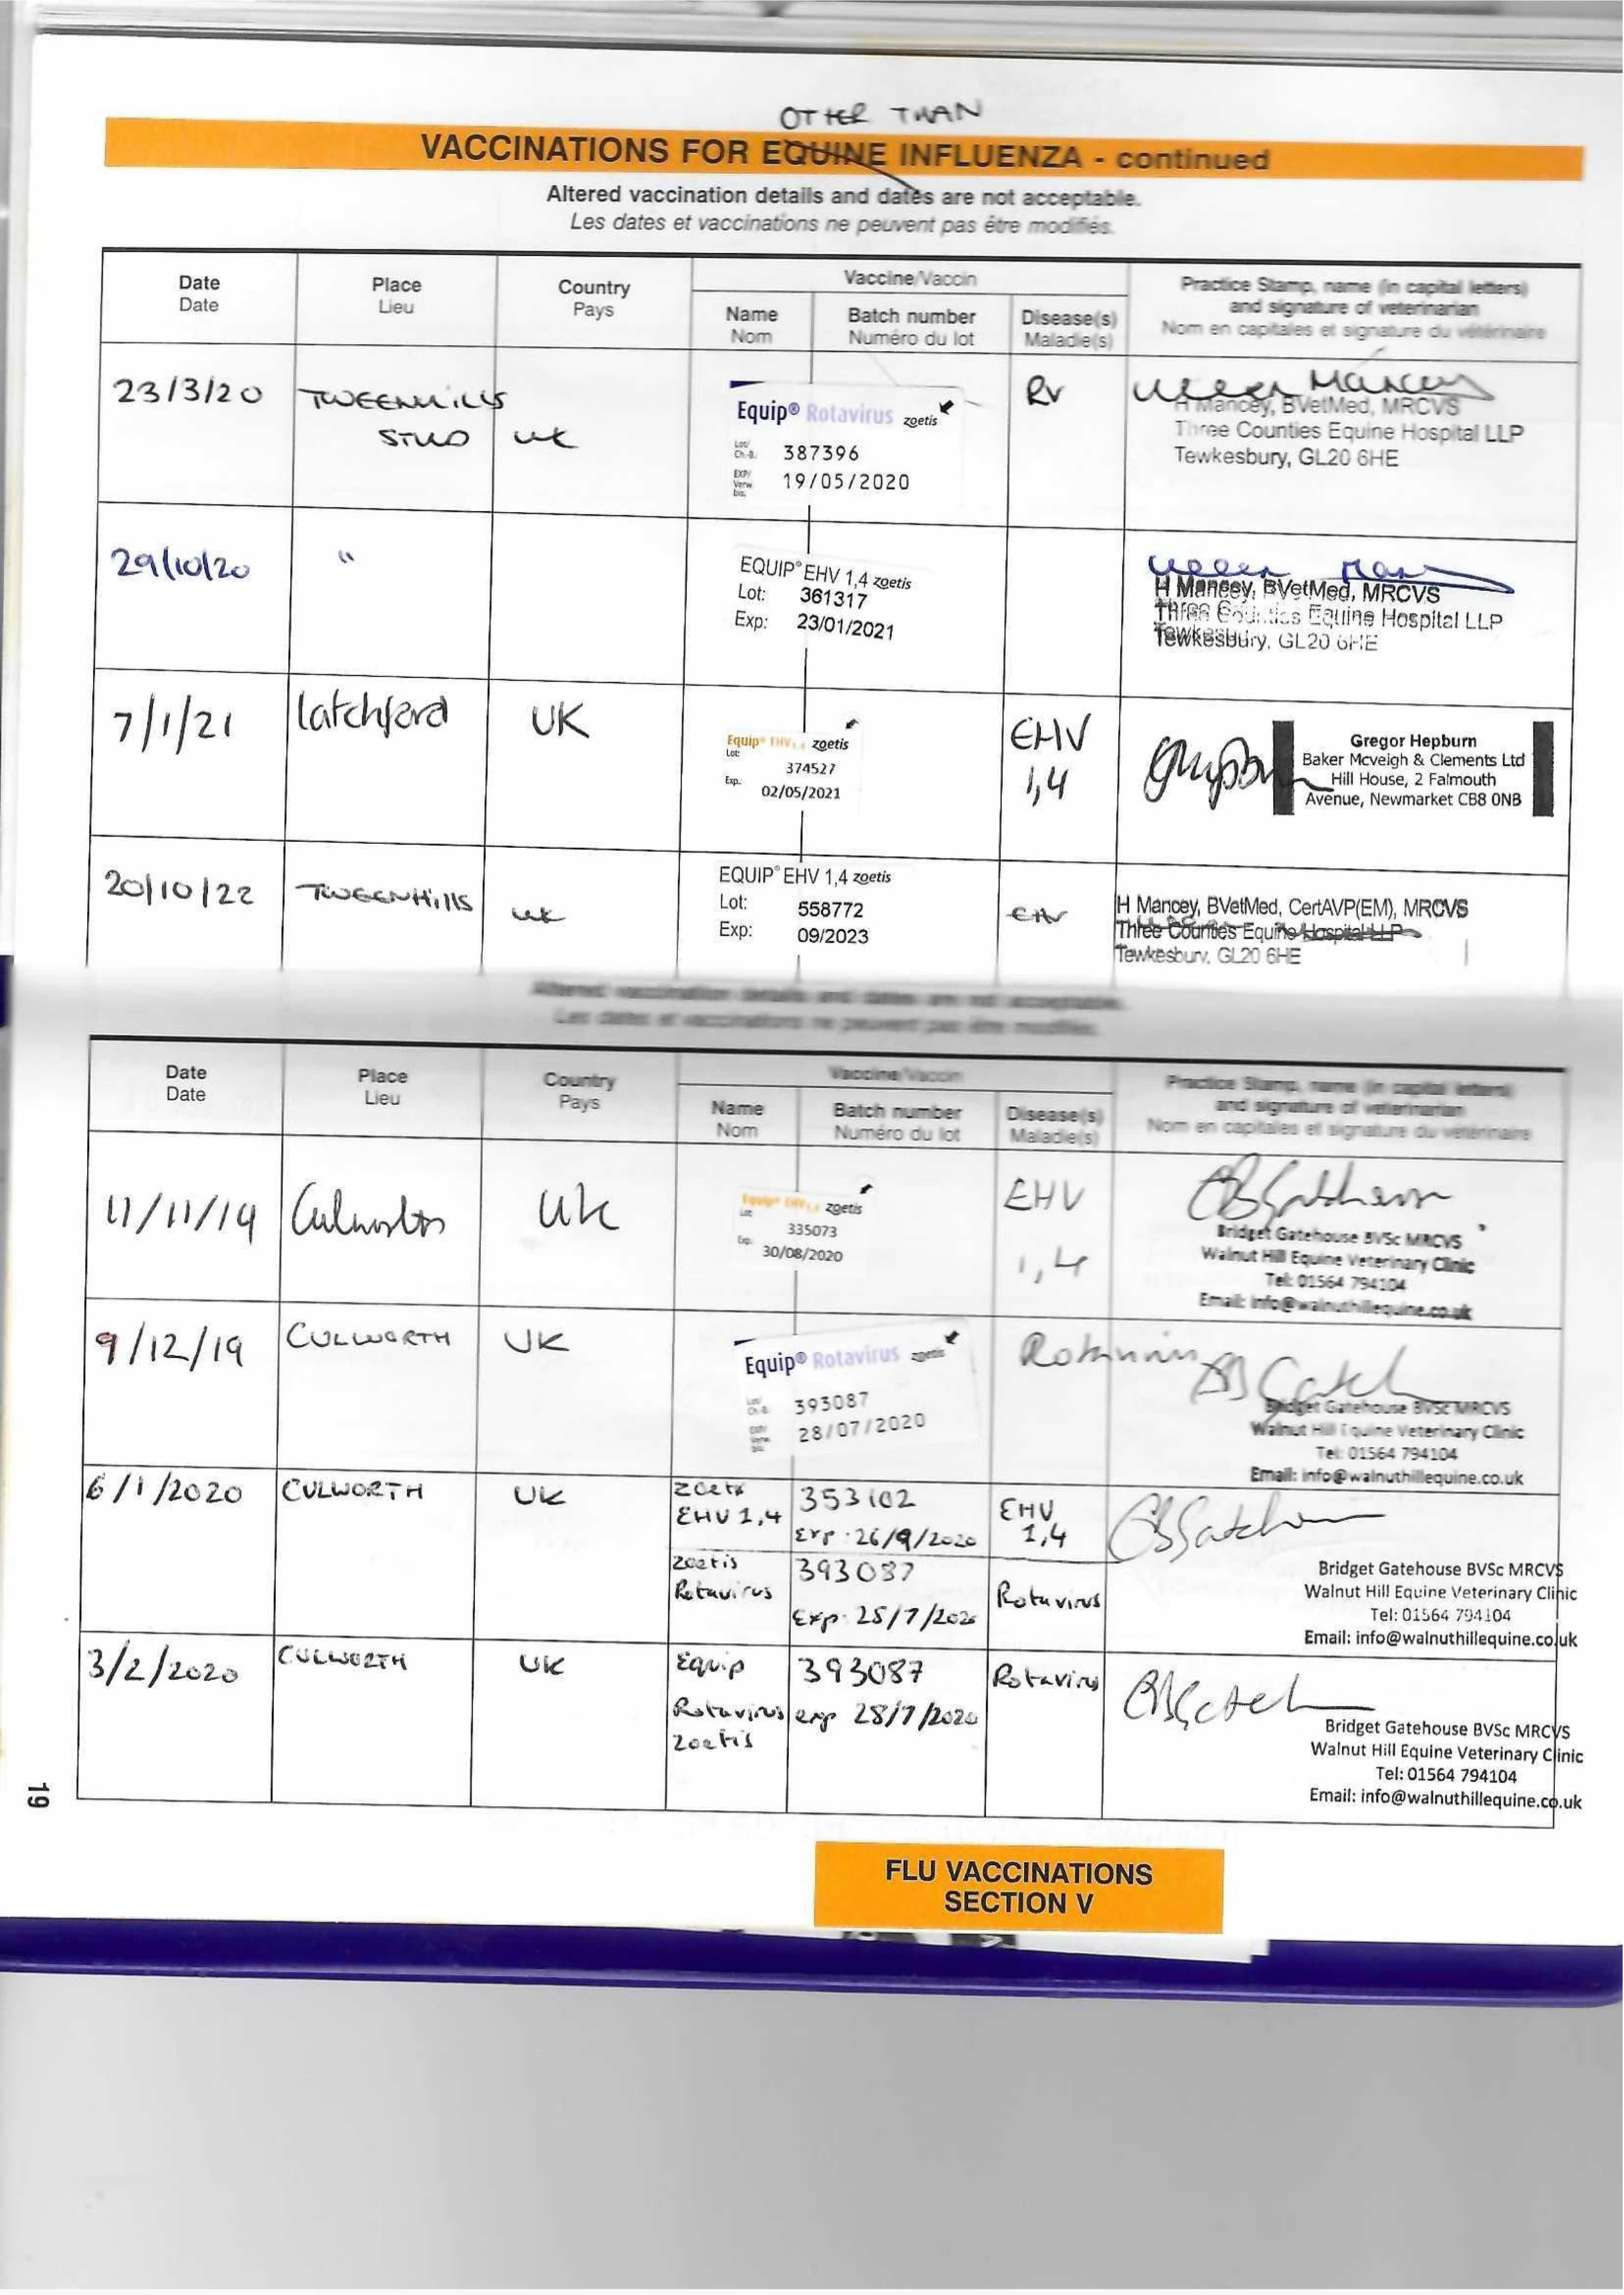 OTHER THAN
VACCINATIONS FOR EQUINE INFLUENZA - continued
Altered vaccination details and dates are not acceptable.
Les dates et vaccinations ne peuvent pas être modifiés.
Date
Date
Place
Lieu
Country
Pays
Vaccine/Vaccin
Name
Nom
Batch number
Numéro du lot
Disease(s)
Maladie(s)
Practice Stamp, name (in capital letters)
and signature of veterinarian
Nom en capitales et signature du vétérinaire
23/3/20
TWEENHILLS
STUD
UK
Equip® Rotavirus zoetis
Lot/
Ch.-B.
387396
EXP/
Verw.
bis:
19/05/2020
RV
Mancey
H Mancey, BVetMed, MRCVS
Three Counties Equine Hospital LLP
Tewkesbury, GL20 6HE
29/10/20
"
EQUIP® EHV 1,4 zoetis
Lot: 361317
Exp: 23/01/2021
H Mancey, BVetMed, MRCVS
Three Counties Equine Hospital LLP
Tewkesbury, GL20 6HE
7/1/21
latchford
UK
Equip® EHV 1,4 zoetis
Lot:
374527
Exp. 02/05/2021
EHV
1,4
Gregor Hepburn
Baker Mcveigh & Clements Ltd
Hill House, 2 Falmouth
Avenue, Newmarket CB8 0NB
20/10/22
TWEENHills
UK
EQUIP® EHV 1,4 zoetis
Lot: 558772
Exp: 09/2023
EHV
H Mancey, BVetMed, CertAVP(EM), MRCVS
Three Counties Equine Hospital LLP
Tewkesbury, GL20 6HE
Altered vaccination details and dates are not acceptable.
Les dates et vaccinations ne peuvent pas être modifiés.
Date
Date
Place
Lieu
Country
Pays
Vaccine/Vaccin
Name
Nom
Batch number
Numéro du lot
Disease(s)
Maladie(s)
Practice Stamp, name (in capital letters)
and signature of veterinarian
Nom en capitales et signature du vétérinaire
11/11/19
Culworth
Uk
Equip® EHV 1,4 zoetis
Lot
335073
Exp. 30/08/2020
EHV
1,4
Bridget Gatehouse BVSc MRCVS
Walnut Hill Equine Veterinary Clinic
Tel: 01564 794104
Email: info@walnuthillequine.co.uk
9/12/19
CULWORTH
UK
Equip® Rotavirus zoetis
393087
28/07/2020
Rotavirus
Bridget Gatehouse BVSc MRCVS
Walnut Hill Equine Veterinary Clinic
Tel: 01564 794104
Email: info@walnuthillequine.co.uk
6/1/2020
CULWORTH
UK
Zoetis
EHV 1,4
353102
Exp: 26/9/2020
EHV
1,4
Zoetis
Rotavirus
393087
Exp: 28/7/2020
Rotavirus
Bridget Gatehouse BVSc MRCVS
Walnut Hill Equine Veterinary Clinic
Tel: 01564 794104
Email: info@walnuthillequine.co.uk
3/2/2020
CULWORTH
UK
Equip
Rotavirus
Zoetis
393087
exp 28/7/2020
Rotavirus
Bridget Gatehouse BVSc MRCVS
Walnut Hill Equine Veterinary Clinic
Tel: 01564 794104
Email: info@walnuthillequine.co.uk
19
FLU VACCINATIONS
SECTION V